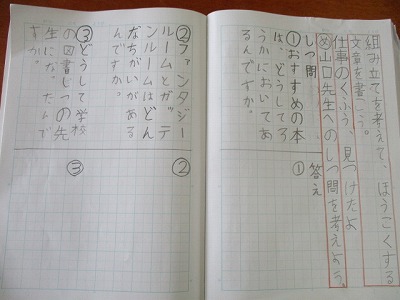 組み立てを考えて、ほうこくする
文章を書こう。
仕事のくふう、見つけたよ
め山口先生へのしつ問を考えよう。
しつ問
答え
①おすすめの本
は、どうしてろ
うかにおいてあ
るんですか。
①
②ファンタジー
ルームとガッテ
ンルームはどん
なちがいがある
んですか。
②
③どうして学校
の図書しつの先
生になったんで
すか。
③